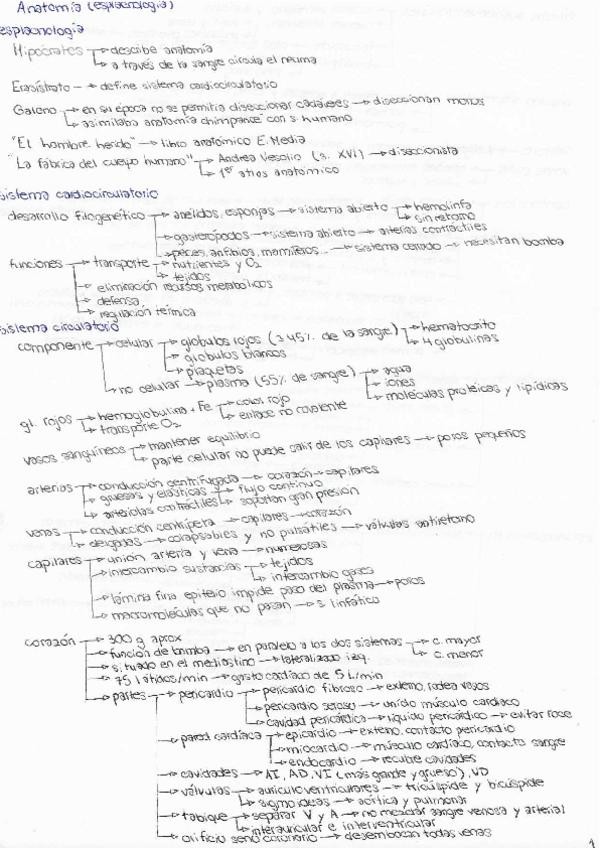 Anatomía (esplacnología)
esplacnología
Hipócrates → describe anatomía
→ a través de la sangre circula el neuma
Erasístrato → define sistema cardiocirculatorio
Galeno → en su época no se permitía diseccionar cadáveres → diseccionan monos
→ asimilaba anatomía chimpancé con s. humano
"El hombre herido" → libro anatómico E. Media
"La fábrica del cuerpo humano" → Andrea Vesalio (s. XVI) → diseccionista
→ 1er atlas anatómico
sistema cardiocirculatorio
desarrollo filogenético → anélidos, esponjas → sistema abierto → hemolinfa
→ sin retorno
→ gasterópodos → sistema abierto → arterias contráctiles
→ peces, anfibios, mamíferos... → sistema cerrado → necesitan bomba
funciones → transporte → nutrientes y O2
→ tejidos
→ eliminación recursos metabólicos
→ defensa
→ regulación térmica
sistema circulatorio
componente → celular → glóbulos rojos (≥45% de la sangre) → hematocrito
→ 4 globulinas
→ glóbulos blancos
→ plaquetas
→ no celular → plasma (55% de sangre) → agua
→ iones
→ moléculas proteicas y lipídicas
gl. rojos → hemoglobulina + Fe → color rojo
→ enlace no covalente
→ transporte O2
vasos sanguíneos → mantener equilibrio
→ parte celular no puede salir de los capilares → poros pequeños
arterias → conducción centrífugada → corazón → capilares
→ gruesas y elásticas → flujo continuo
→ soportan gran presión
→ arteriolas contráctiles
venas → conducción centrípeta → capilares → corazón
→ delgadas → colapsables y no pulsátiles → válvulas antiretorno
capilares → unión arteria y vena → numerosas
→ intercambio sustancias → tejidos
→ intercambio gases
→ lámina fina epitelio impide paso del plasma → poros
→ macromoléculas que no pasan → s. linfático
corazón → 300 g aprox
→ función de bomba → en paralelo a los dos sistemas → c. mayor
→ c. menor
→ situado en el mediastino → lateralizado izq.
→ 75 latidos/min → gasto cardíaco de 5 L/min
→ partes → pericardio → pericardio fibroso → externo, rodea vasos
→ pericardio seroso → unido músculo cardíaco
→ cavidad pericárdica → líquido pericárdico → evitar roce
→ pared cardíaca → epicardio → externo, contacto pericardio
→ miocardio → músculo cardíaco, contacto sangre
→ endocardio → recubre cavidades
→ cavidades → AI, AD, VI (más grande y grueso), VD
→ válvulas → auriculoventriculares → tricúspide y bicúspide
→ sigmoideas → aórtica y pulmonar
→ tabique → separar V y A → no mezclar sangre venosa y arterial
→ interauricular e interventricular
→ orificio seno coronario → desembocan todas venas
1